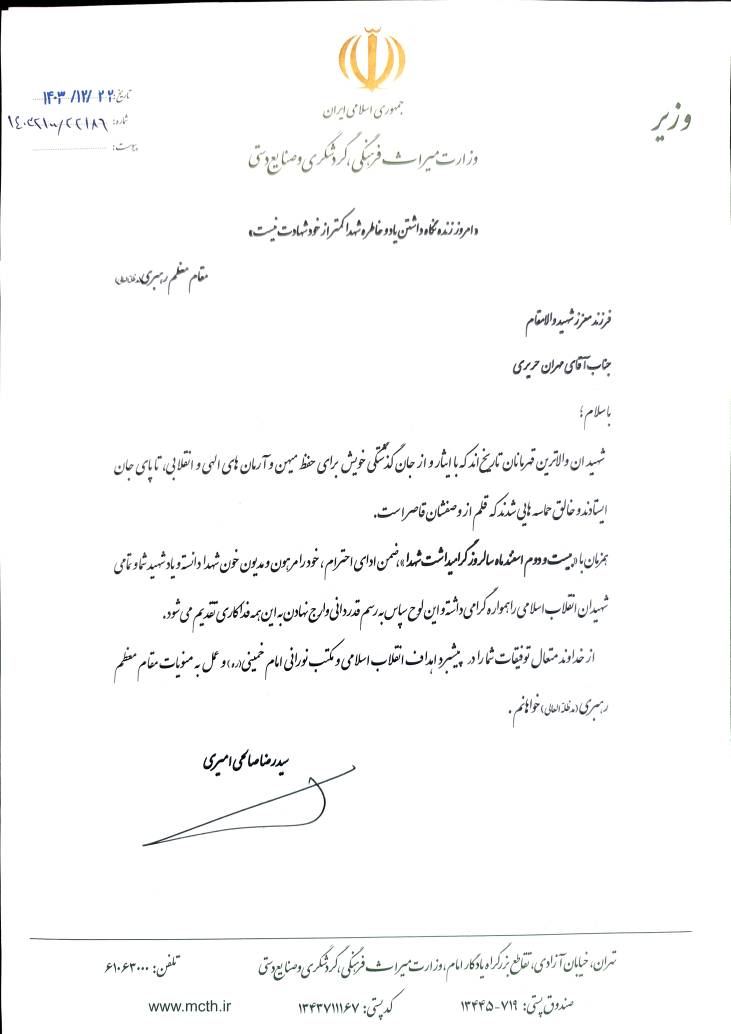 جمهوری اسلامی ایران
وزارت میراث فرهنگی، گردشگری و صنایع دستی
وزیر
تاریخ: ۱۴۰۳/۱۲/۲۲
شماره: ۱۴۰۳۲۱۰۰/۲۲۱۸۶
پیوست:
«امروز زنده نگاه داشتن یاد و خاطره شهدا کمتر از خود شهادت نیست»
مقام معظم رهبری (مدظله‌العالی)
فرزند معزز شهید والامقام
جناب آقای مهران حریری
با سلام؛
شهیدان والاترین قهرمانان تاریخ‌اند که با ایثار و از جان گذشتگی خویش برای حفظ میهن و آرمان های الهی و انقلابی، تا پای جان
ایستادند و خالق حماسه هایی شدند که قلم از وصفشان قاصر است.
همزمان با «بیست و دوم اسفند ماه سالروز گرامیداشت شهدا»، ضمن ادای احترام، خود را مرهون و مدیون خون شهدا دانسته و یاد شهید شما و تمامی
شهیدان انقلاب اسلامی را همواره گرامی داشته و این لوح سپاس به رسم قدردانی و ارج نهادن به این همه فداکاری تقدیم می شود.
از خداوند متعال توفیقات شما را در پیشبرد اهداف انقلاب اسلامی و مکتب نورانی امام خمینی (ره) و عمل به منویات مقام معظم
رهبری (مدظله العالی) خواهانم.
سیدرضا صالحی امیری
تهران، خیابان آزادی، تقاطع بزرگراه یادگار امام، وزارت میراث فرهنگی، گردشگری و صنایع دستی
تلفن: ۶۱۰۶۳۰۰۰
صندوق پستی: ۷۱۹-۱۳۴۴۵
کد پستی: ۱۳۴۳۷۱۱۱۶۷
www.mcth.ir